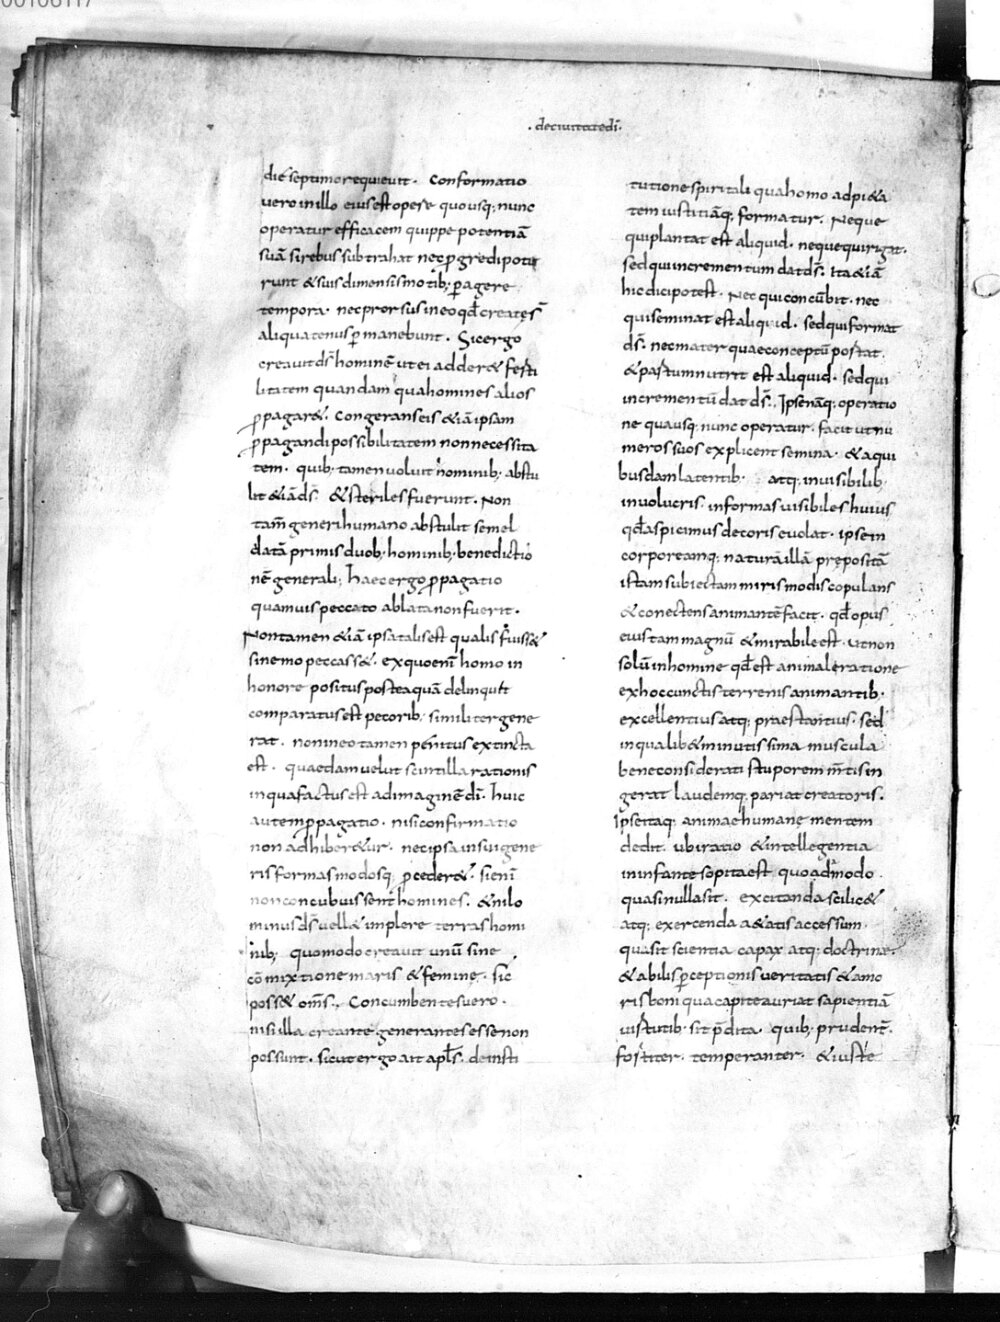 .deciuitatedi.
die septimo requieuit. Conformatio
uero in illo eius est opere quo usq; nunc
operatur efficacem quippe potentiā
suā si rebus subtrahat nec ꝓgredi potue
runt & suis dimensis motib; ꝑagere
tempora. nec prorsus in eo qđ creatęs
aliquatenus ꝑmanebunt. Sic ergo
creauit ds̄ hominē ut ei adder& ferti
litatem quandam qua homines alios
ꝓpagar&. Congerans eis &iā ipsam
ꝓpagandi possibilitatem non necessita
tem. quib; tamen uoluit hominib; abstu
lit &iā ds̄. & steriles fuerunt. Non
tam̄ generi humano abstulit semel
datā primis duob; hominib; benedictio
nē generali; haec ergo ꝓpagatio
quamuis peccato ablata non fuerit.
Non tamen &iā ipsa talis est qualis fuiss&
si nemo peccass&. ex quo enī homo in
honore positus postea quā deliquit
comparatus est pecorib; similiter gene
rat. non in eo tamen penitus extincta
est. quaedam uelut scintilla rationis
in qua factus est ad imaginē dī. huic
autem ꝓpagatio. nisi conformatio
non adhiber&ur. nec ipsa in sui gene
ris formas modosq; ꝓceder&. si enī
non concubuissent homines. & nilo
minus ds̄ uell& implere terras homi
nib; quomodo creauit unū sine
cōmixtione maris & feminę. sic
poss& oms̄. Concumbentes uero.
nisi illa creante generantes esse non
possunt. sicut ergo ait apls̄. de insti
tutione spiritali qua homo ad pi&a
tem iustitiāq; formatur. Neque
qui plantat est aliquid. neque qui rigat.
sed qui incrementum dat ds̄. Ita &iā
hic dici potest. Nec qui concūbit. nec
qui seminat est aliquid. sed qui format
ds̄. nec mater quae conceptū portat.
& partum nutrit est aliquid. sed qui
incrementū dat ds̄. Ipse nāq; operatio
ne qua usq; nunc operatur. facit ut nu
meros suos explicent semina. & a qui
busdam latentib; atq; inuisibilib;
inuolucris. in formas uisibiles huius
qđ aspicimus decoris euolat. ipse in
corporeamq; naturā illā prępositā
istam subiectam miris modis copulans
& conectens animantē facit. qđ opus
eius tam magnū & mirabile est. ut non
solū in homine qđ est animal eratione
ex hoc cunctis terrenis animantib;
excellentius atq; praestantius. sed
in qualib& minutissima muscula
bene consideranti stuporem m̄tis in
gerat laudemq; pariat creatoris.
Ipse itaq; animae humanę mentem
dedit. ubi ratio & intellegentia
in infante sopita est quo ad modo.
quasi nulla sit. excitanda scilic&
atq; exercenda a&atis accessum.
qua sit scientia capax atq; doctrinę.
& abilis ꝑceptionis ueritatis & amo
ris boni qua capite auriat sapientiā
uirtutib. sit p̄dita. quib; prudent̄.
fortiter. temperanter. & iuste